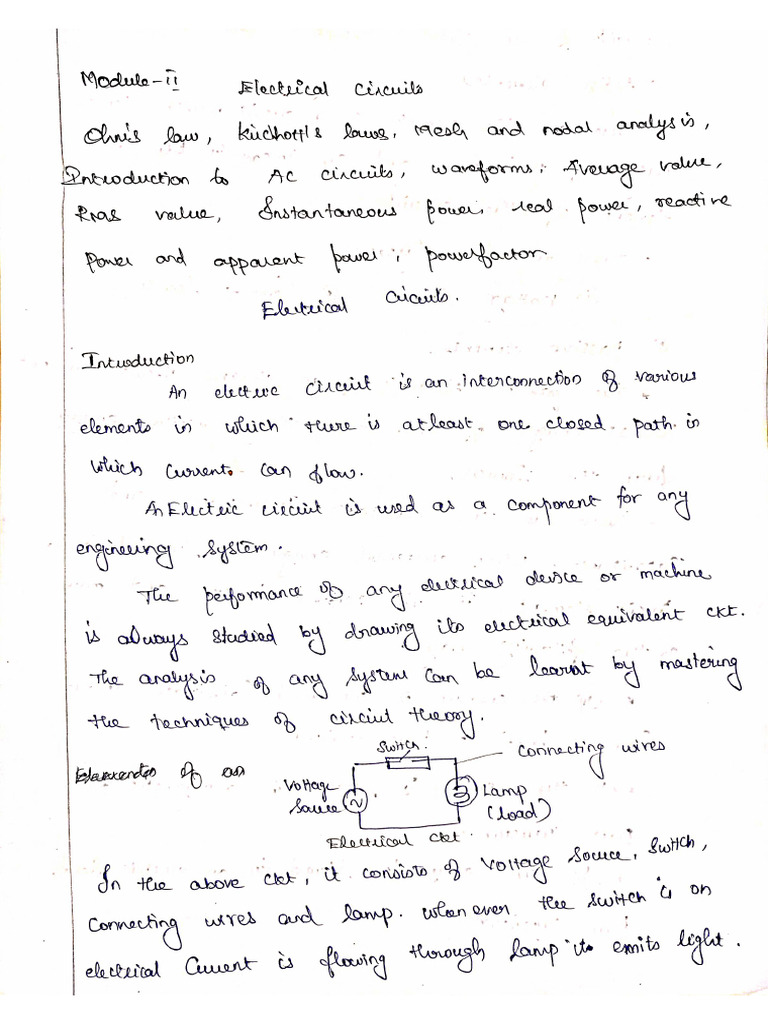 Module-ii Electrical Circuits
Ohm's law, Kirchoff's laws, Mesh and nodal analysis,
Introduction to AC circuits, waveforms, Average value,
Rms value, Instantaneous power, real power, reactive
Power and apparent power, powerfactor
Electrical Circuits.
Introduction
An electric circuit is an interconnection of various
elements in which there is atleast one closed path in
which current can flow.
An Electric circuit is used as a component for any
engineering system.
The performance of any electrical device or machine
is always studied by drawing its electrical equivalent ckt.
The analysis of any system can be learnt by mastering
the techniques of circuit theory.
Switch.
connecting wires
Elements of an
Voltage
Source
Lamp
(load)
Electrical ckt
In the above ckt, it consists of Voltage Source, Switch,
Connecting wires and lamp. whenever the switch is on
electrical Current is flowing through lamp its emits light.